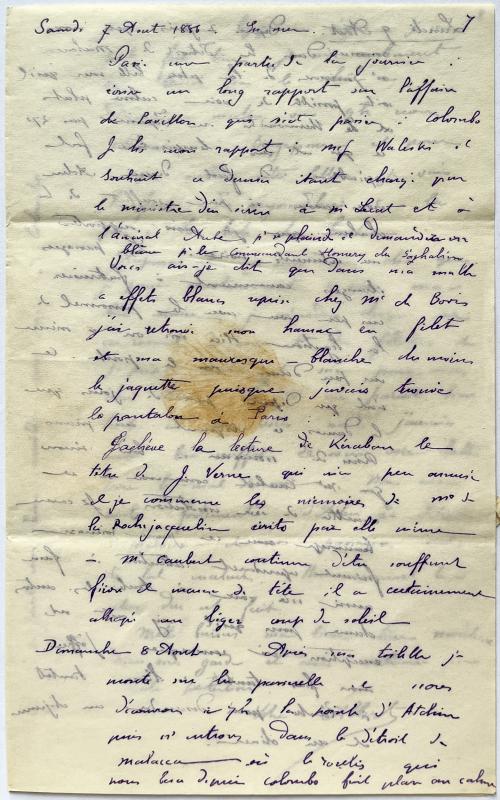 Samedi 7 Aout 1886 En mer. 7
Passé une partie de la journée à
écrire un long rapport sur l'affaire
de Pavillon qui s'est passée à Colombo
Je lis mon rapport à Mrs Waleski et
ce dernier étant chargé par
le ministre d'en écrire à Mr et à
l'amiral Aube pr se plaindre et demander un
blâme pr le Commandant du
Vous ais-je dit que dans ma malle
à effets blancs reprise chez Mr de Bovis
j'ai retrouvé mon hamac en filet
et ma mauresque – blanche du moins
la jaquette puisque j'avais trouvé
le pantalon à Paris
J'achève la lecture de Kéraban le
têtu de J. Verne qui m'a peu amusé
et je commence les mémoires de Me de
la Rochejacquelin écrits par elle même
– Mr Caubert continue d'être souffrant
fièvre et maux de tête il a certainement
attrapé un léger coup de soleil
Dimanche 8 Aout Après ma toilette je
monte sur la passerelle et nous
découvrons à 7h la pointe d'Atchin
puis n. entrons dans le détroit de
Malacca – où le roulis qui
nous depuis Colombo fait place au calme